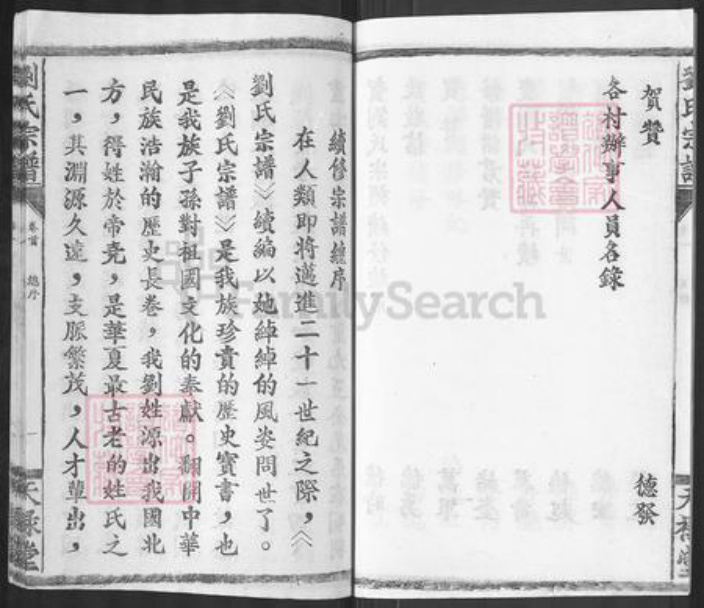 賀贊
德發
各村辦事人員名錄
續修宗譜總序
在人類即將邁進二十一世紀之際，《
劉氏宗譜》續編以她綽綽的風姿問世了。
《劉氏宗譜》是我族珍貴的歷史寶書，也
是我族子孫對祖國文化的奉獻。翻開中華
民族浩瀚的歷史長卷，我劉姓源出我國北
方，得姓於帝堯，是華夏最古老的姓氏之
一，其淵源久遠，支脈繁茂，人才輩出，
劉氏宗譜
卷首
總序
一
天祿堂
FamilySearch